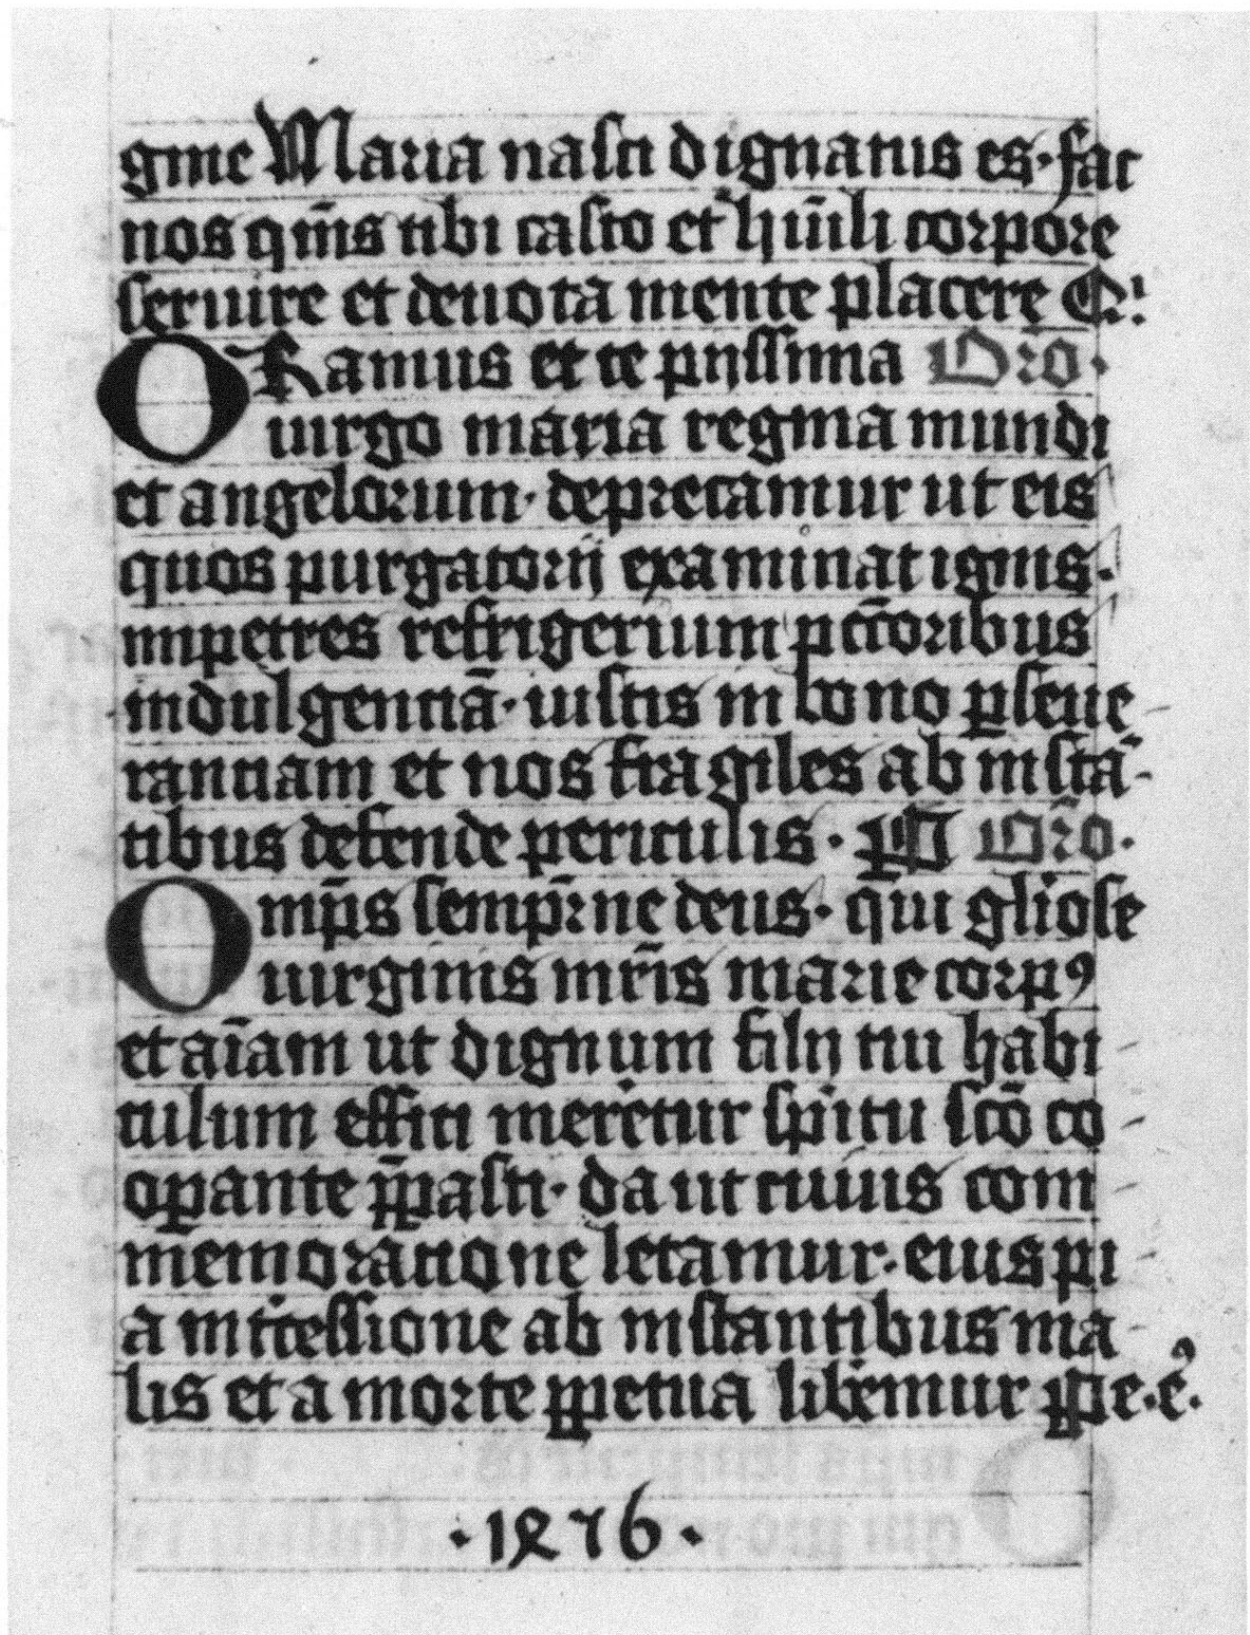 gine Maria nasci dignatus es · fac
nos qm̄s tibi casto et hūili corpore
seruire et deuota mente placere
ORamus et te pijssima Oro̅ ·
uirgo maria regina mundi
et angelorum · deprecamur ut eis
quos purgatorij examinat ignis ·
impetres refrigerium pcc̄oribus
indulgenciā · iustis in bono ꝑseue
ranciam et nos fragiles ab instā
tibus defende periculis · Oro̅ ·
Omp̄s semp̄rne deus · qui gl̄iose
uirginis mr̄is marie corpꝰ
et aīam ut dignum filij tui habi
culum effici meretur sp̄itu sc̄o co
oꝑante p̄paͣsti · da ut cuius com
memoracione letamur · eius pi
a int̄cessione ab instantibus ma
lis et a morte ꝑpetua libemur ꝑ
· 1476 ·